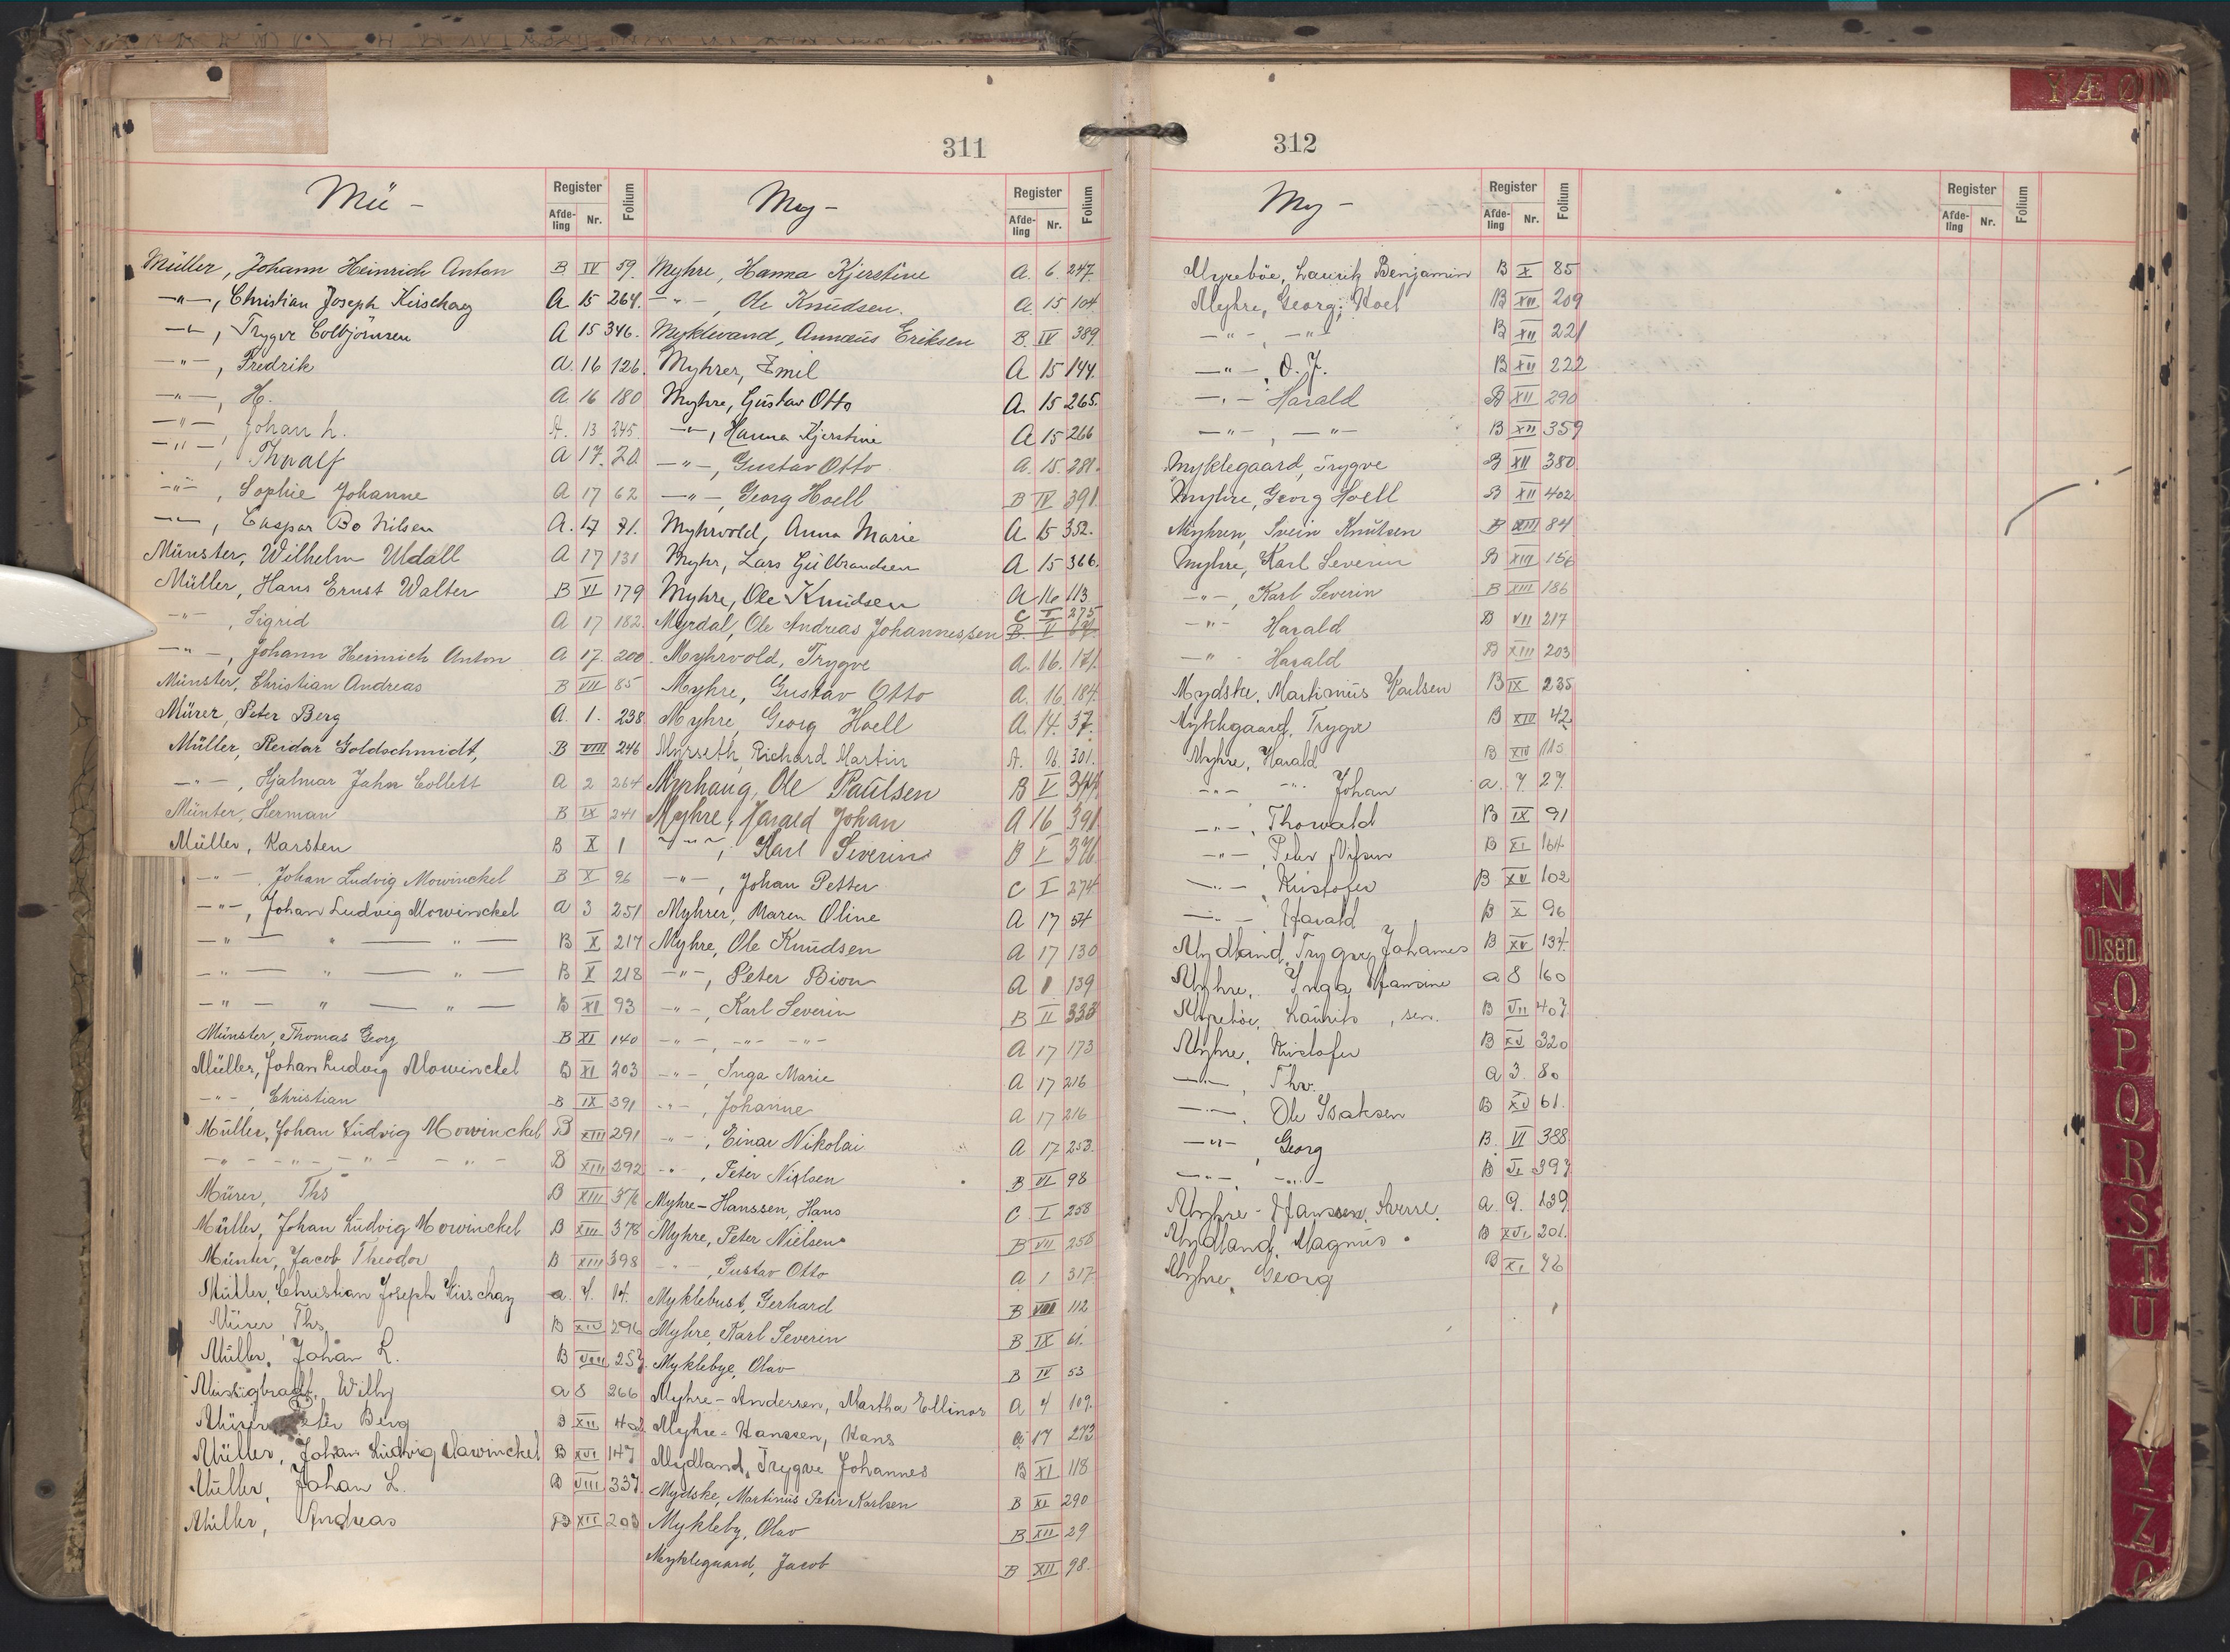 311
Mü -
Register
Afde-
ling
Nr.
Folium
Müller, Johann Heinrich Anton B IV 59.
-"-, Christian Joseph Kirschay A 15 264.
-"-, Trygve Colbjörnsen A 15 346.
-"-, Fredrik A. 16 126.
-"-, H. A. 16 180
-"-, Johan L. A. 13 245.
-"-, Thoralf A 17. 20
-"-, Sophie Johanne A 17 62
-"-, Caspar Bo Nilsen A. 17 71.
Münster, Wilhelm Uldall A 17 131
Müller, Hans Ernst Walter B VI 179
-"-, Sigrid A 17 182.
-"-, Johann Heinrich Anton A 17. 200.
Münster, Christian Andreas B VII 85
Mürer, Peter Berg A. 1. 238
Müller, Reidar Goldschmidt, B VIII 246
-"-, Hjalmar Jahn Collett A 2 264
Münter, Herman B IX 241
Müller, Karsten B X 1
-"-, Johan Ludvig Mowinckel B X 96
-"-, Johan Ludvig Mowinckel A 3 251
-"- " -"- B X 217
-"- " -"- B X 218
-"- " -"- B XI 93
Münster, Thomas Georg B XI 140
Müller, Johan Ludvig Mowinckel B XI 203
-"-, Christian B IX 391
Müller, Johan Ludvig Mowinckel B XIII 291
-"- -"- -"- -"- B XIII 292
Mürer, Ths B XIII 376
Müller, Johan Ludvig Mowinckel B XIII 378
Münter, Jacob Theodor B XIII 398
Müller, Christian Joseph Kirschay a. 7. 14.
Mürer, Ths. B XIV 296
Müller, Johan L. B VIII 257.
Willy a 8 266
Mürer Peter Berg B XII
Müller, Johan Ludvig Mowinckel B XVI 147
Müller, Johan L. B VIII 337
Müller, Andreas B XII 203
My -
Register
Afde-
ling
Nr.
Folium
Myhre, Hanna Kjerstine A. 6. 247.
-"-, Ole Knudsen. A. 15 104.
Myklevand, Annæus Eriksen B. IV 389.
Myhrer, Emil A 15 144.
Myhre, Gustav Otto A. 15 265.
-"-, Hanna Kjerstine A 15 266
-"-, Gustav Otto A. 15. 281.
-"-, Georg Hoell B IV 391.
Myhrvold, Anna Marie A 15 352.
Myhr, Lars Gulbrandsen A 15 366.
Myhre, Ole Knudsen A 16 113
C I 275
Myrdal, Ole Andreas Johannessen B. V 67.
Myhrvold, Trygve A. 16. 171.
Myhre, Gustav Otto A. 16 184.
Myhre, Georg Hoell A. 14. 37.
Myrseth, Richard Martin A. 16. 301.
Myrhaug, Ole Paulsen B V 344
Myhre, Harald Johan A 16 391
-"-, Karl Severin B V 376
-"-, Johan Petter C I 274.
Myhrer, Maren Oline A 17 54
Myhre, Ole Knudsen A 17 130
-"-, Peter Bion A 1 139
-"-, Karl Severin B II 333
-"-, -"- -"- A 17 173
-"-, Inga Marie A 17 216
-"-, Johanne A 17 216
-"-, Einar Nikolai A 17 253.
-"-, Peter Nielsen B VI 98
Myhre-Hanssen, Hans C. I 258
Myhre, Peter Nielsen B VII 258
-"-, Gustav Otto A 1 317
Myklebust, Gerhard B VIII 112
Myhre, Karl Severin B IX 61.
Myklebye, Olav B IV 53
Myhre-Andersen, Martha Ellinor A 4 109.
Myhre-Hanssen, Hans a 17 273
Mydland, Trygve Johannes B XI 118
Mydske, Martinus Peter Karlsen B XI 290
Mykleby, Olav B XII 29
Myklegaard, Jacob B XII 98.
312
My -
Register
Afde-
ling
Nr.
Folium
Myrebøe, Laurits Benjamin B X 85
Myhre, Georg Hoel B XII 209
-"-, -"- B XII 221
-"-, O. J. B XII 222
-"- Harald B XII 290
-"-, -"- B XII 359
Myklegaard, Trygve B XII 380
Myhre, Georg Hoell B XII 402
Myhren, Svein Knutsen B XIII 84
Myhre, Karl Severin B XIII 156
-"-, Karl Severin B XIII 186
-"- Harald B VII 217
-"- Harald B XIII 203
Mydske, Martinus Karlsen B IX 235
Myklegaard, Trygve B XIV 42
Myhre, Harald B XIV 113
-"- -"- Johan a. 7. 27.
-"-, Thorvald B IX 91
-"-, Peter Nilsen B XI 164
-"-, Kristofer B XV 102
-"-, Harald B X 96
Mydland, Trygve Johannes B XV 134.
Myhre, Inga Hansine a 8 160
Myrebøe, Laurits, sen. B VII 407
Myhre, Kristofer B XV 320
-"-, Thv. a 3. 80
-"-, Ole Isaksen B XV 61.
-"-, Georg B. VI 388
-"-, -"- B VI 397
Myhre-Hanssen, Sverre. a. 9. 139.
Mydland, Magnus B XVI 201.
Myhre, Georg B XI 76
Register
Afde-
ling
Nr.
Folium
Y Æ Ø
N
Olsen
O
P
Q
R
S
T
U
Y
Z